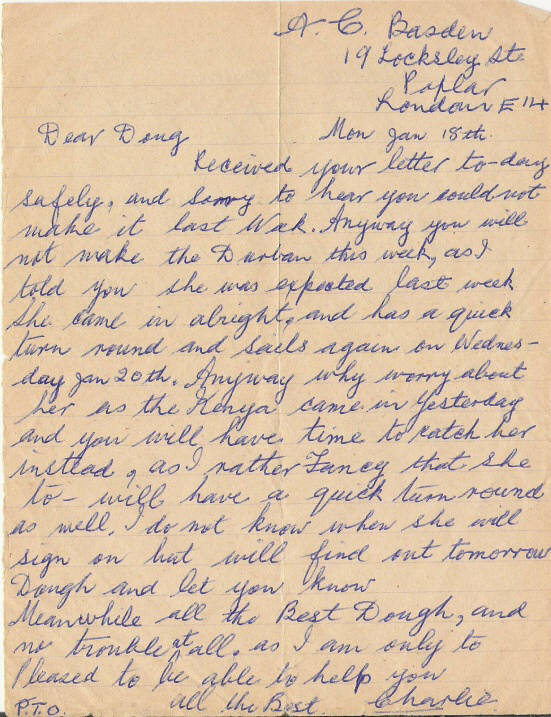 A. C. Basden
19 Locksley St.
Poplar
London E 14
Mon Jan 18th.
Dear Doug
Received your letter to-day
safely, and sorry to hear you could not
make it last Week. Anyway you will
not make the Durban this week, as I
told you she was expected last week
she came in alright, and has a quick
turn round and sails again on Wednes-
day Jan 20th. Anyway why worry about
her as the Kenya came in Yesterday
and you will have time to catch her
instead, as I rather Fancy that she
to- will have a quick turn round
as well. I do not know when she will
sign on but will find out tomorrow
Dough and let you know
Meanwhile all the Best Dough, and
no trouble at all. as I am only to
Pleased to be able to help you
all the Best. Charlie
P.T.O.